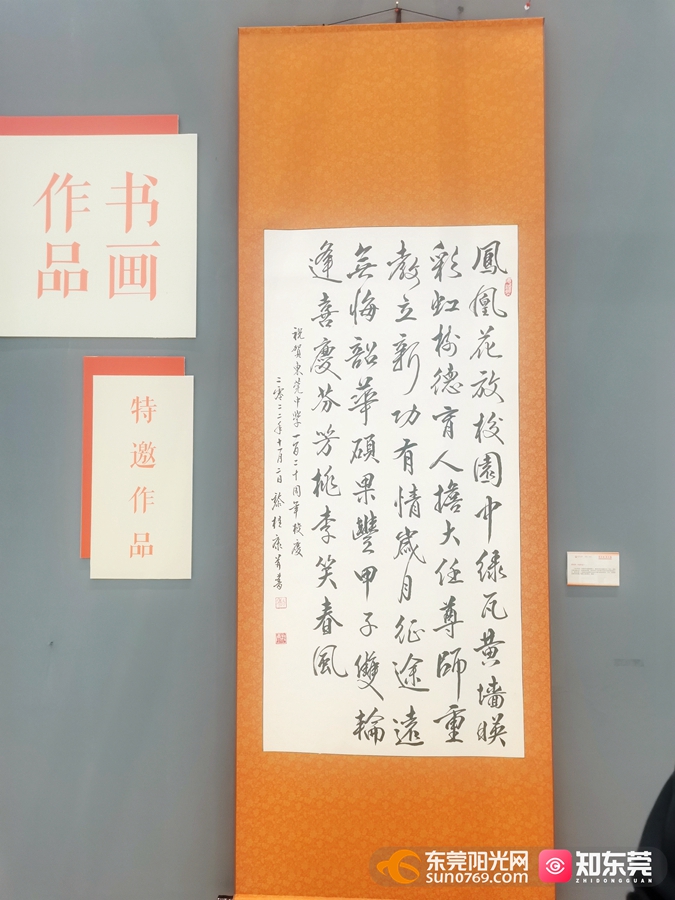 书画
作品
特邀作品
鳳凰花放校園中綠瓦黃墻暎
彩虹樹德育人擔大任尊師重
教立新功有情歲月征途遠
無悔韶華碩果豐甲子雙輪
逢喜慶芬芳桃李笑春風
祝賀東莞中學一百二十周年校慶
二零二二年十一月二日 黎桂康并書
东莞阳光网
sun0769.com
知东莞
ZHIDONGGUAN